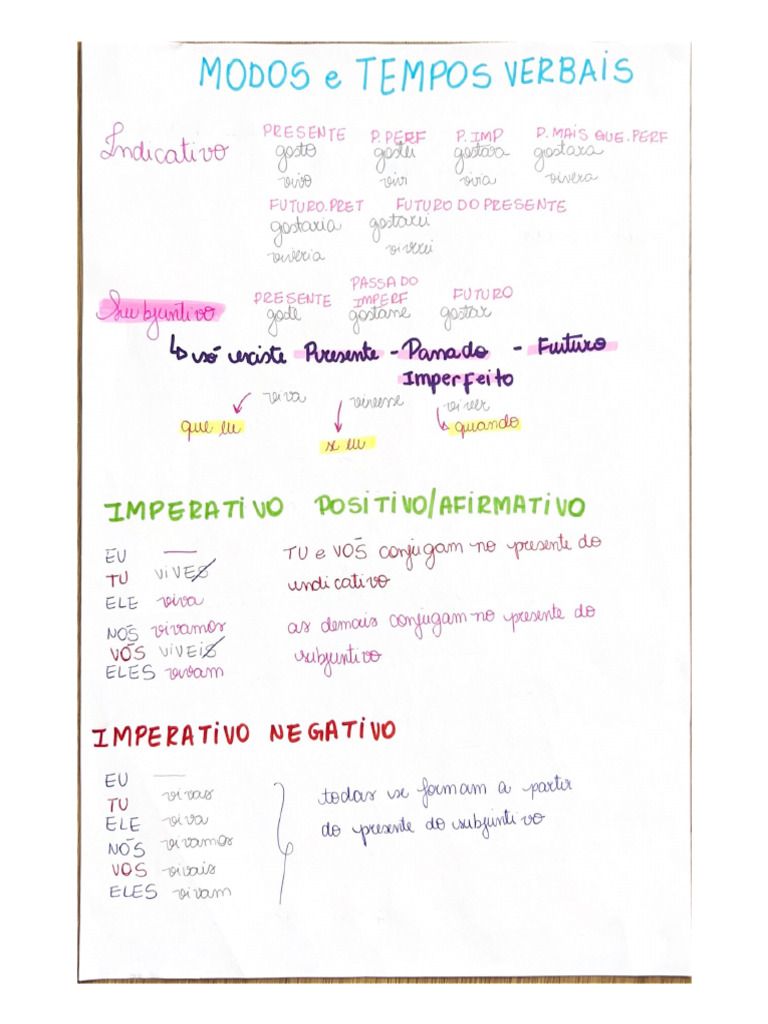 MODOS e TEMPOS VERBAIS
Indicativo
PRESENTE P. PERF P. IMP P. MAIS QUE. PERF
gosto gostei gostava gostara
vivo vivi vivia vivera
FUTURO. PRET FUTURO DO PRESENTE
gostaria gostarei
viveria viverei
Subjuntivo
PRESENTE PASSADO IMPERF FUTURO
goste gostasse gostar
↳ só existe Presente - Passado Imperfeito - Futuro
viva vivesse viver
que eu se eu quando
IMPERATIVO POSITIVO/AFIRMATIVO
EU —
TU VIVES
ELE viva
NÓS vivamos
VÓS VIVEIS
ELES vivam
TU e VÓS conjugam no presente do
indicativo
as demais conjugam no presente do
subjuntivo
IMPERATIVO NEGATIVO
EU —
TU vivas
ELE viva
NÓS vivamos
VOS vivais
ELES vivam
todas se formam a partir
do presente do subjuntivo